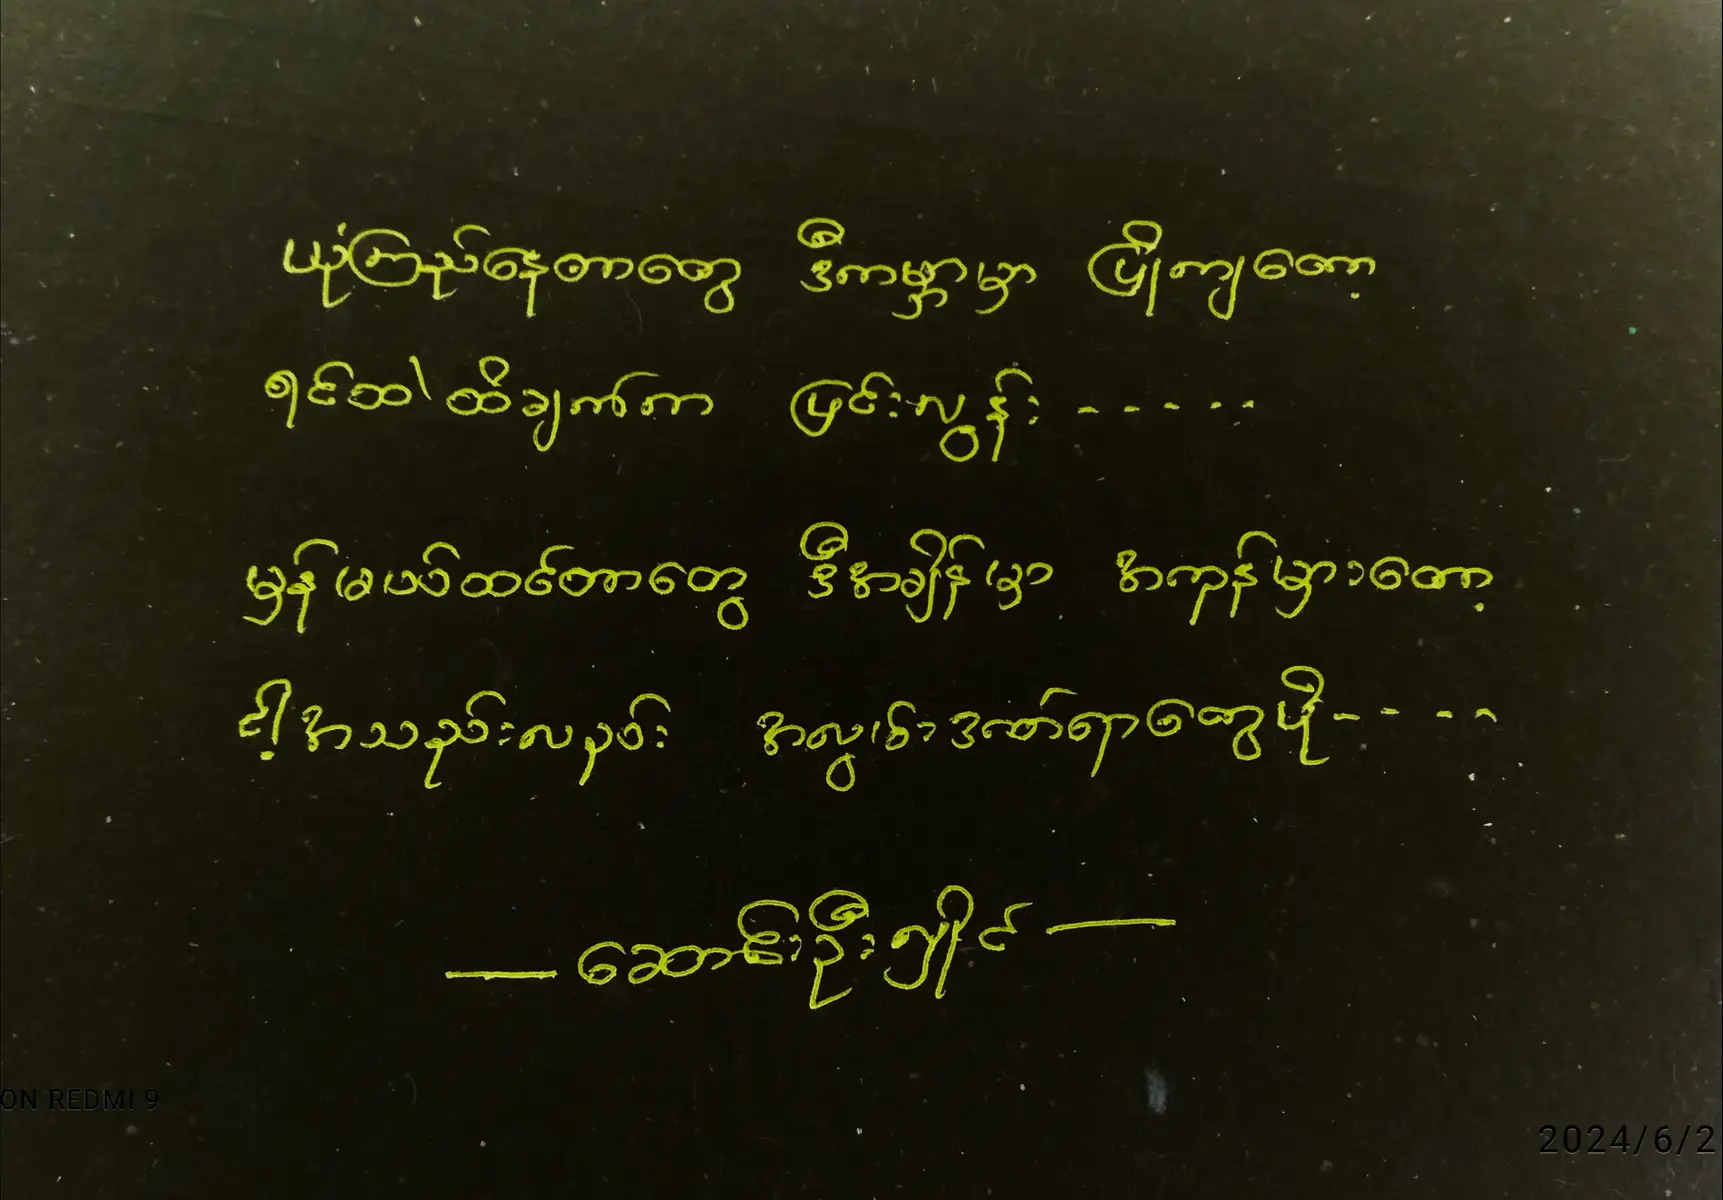 ယုံကြည်နေတာတွေ ဒီကမ္ဘာမှာ ပြိုကျတော့
ရင်ဘတ်ထိချက်က ပြင်းလွန်း -----
မှန်မယ်ထင်တာတွေ ဒီအချိန်မှာ အကုန်မှားတော့
ငါ့အသည်းလည်း အလွမ်းဒဏ်ရာတွေပို----
— ဆောင်းဦးလှိုင် —
ON REDMI 9
2024/6/2